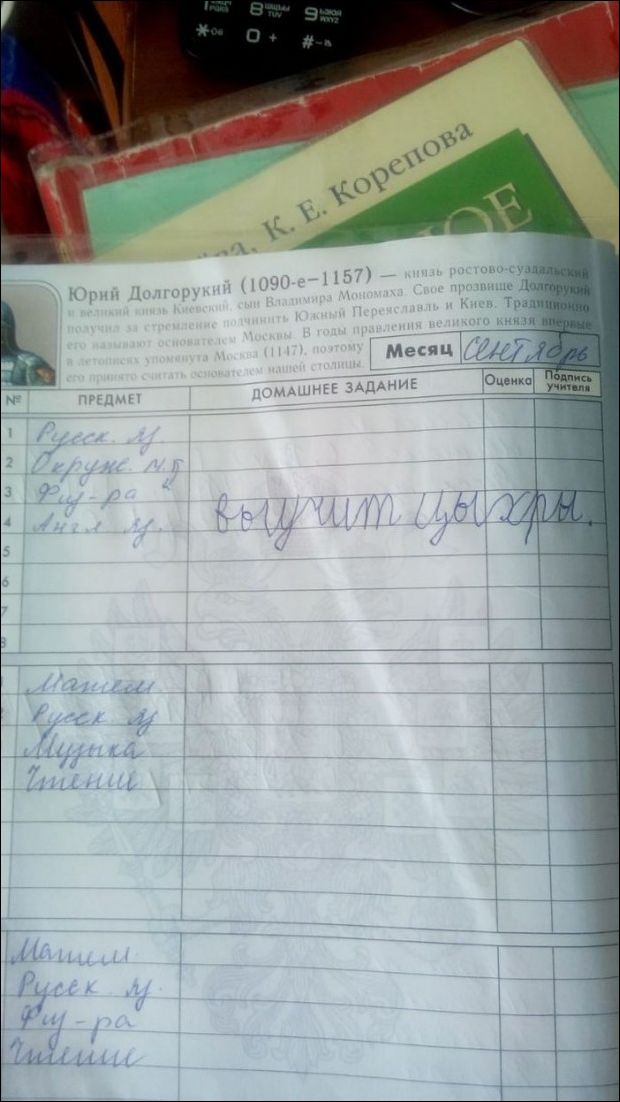 8 шщъы TUV
9 ьэюя WXYZ
* -Об
0 +
#-
К. Е. Корепова
НОЕ
Юрий Долгорукий (1090-е–1157) — князь ростово-суздальский
и великий князь Киевский, сын Владимира Мономаха. Свое прозвище Долгорукий
получил за стремление подчинить Южный Переяславль и Киев. Традиционно
его называют основателем Москвы. В годы правления великого князя впервые
в летописях упомянута Москва (1147), поэтому
его принято считать основателем нашей столицы.
Месяц Сентябрь
№ ПРЕДМЕТ ДОМАШНЕЕ ЗАДАНИЕ Оценка Подпись учителя
1 Русск. яз.
2 Окруж.
3 Физ-ра
4 Англ яз. выучит цыхры.
5
6
7
8
Матем
Русск яз
Музыка
Чтение
Матем.
Русск яз.
Физ-ра
Чтение